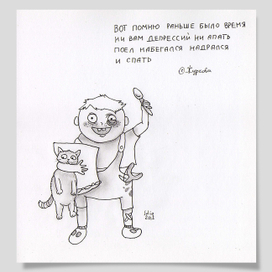 ВОТ ПОМНЮ РАНЬШЕ БЫЛО ВРЕМЯ
НИ ВАМ ДЕПРЕССИЙ НИ АПАТЬ
ПОЕЛ НАБЕГАЛСЯ НАДРАЛСЯ
И СПАТЬ